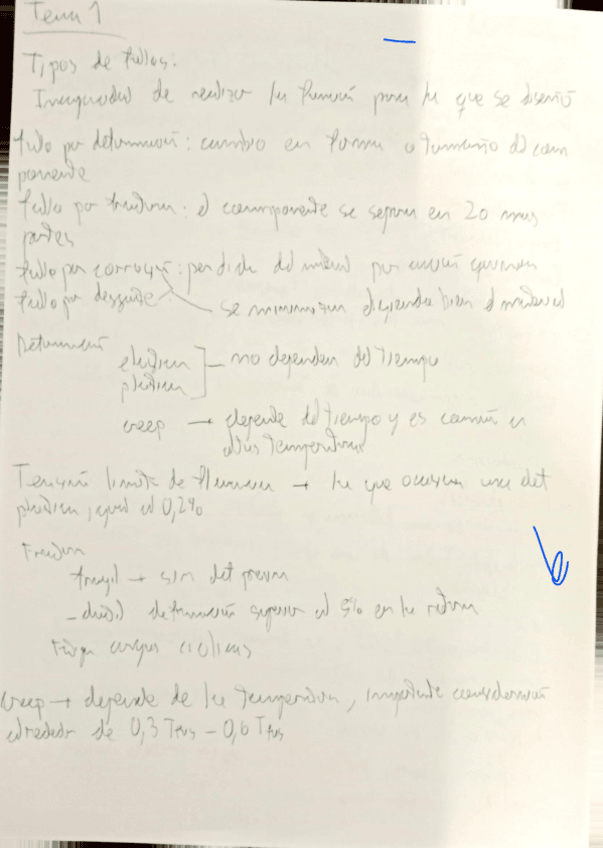 Tema 1
Tipos de fallos.
Incapacidad de realizar la función para la que se diseñó
fallo por deformación: cambio en forma o tamaño del com
ponente
fallo por fractura: el componente se separa en 2 o mas
partes
fallo por corrosión: perdida del material por acción química
fallo por desgaste:
se minimizan eligiendo bien el material
Deformación
elastica
plástica
no dependen del tiempo
creep → depende del tiempo y es común en
altas temperaturas
Tensión limite de fluencia → la que ocasiona una def
plástica igual al 0,2%
Fractura
fragil → sin def previa
ductil deformación superior al 5% en la rotura
Fatiga cargas ciclicas
creep → depende de la temperatura, importante consideración
alrededor de 0,3 Tfus - 0,6 Tfus